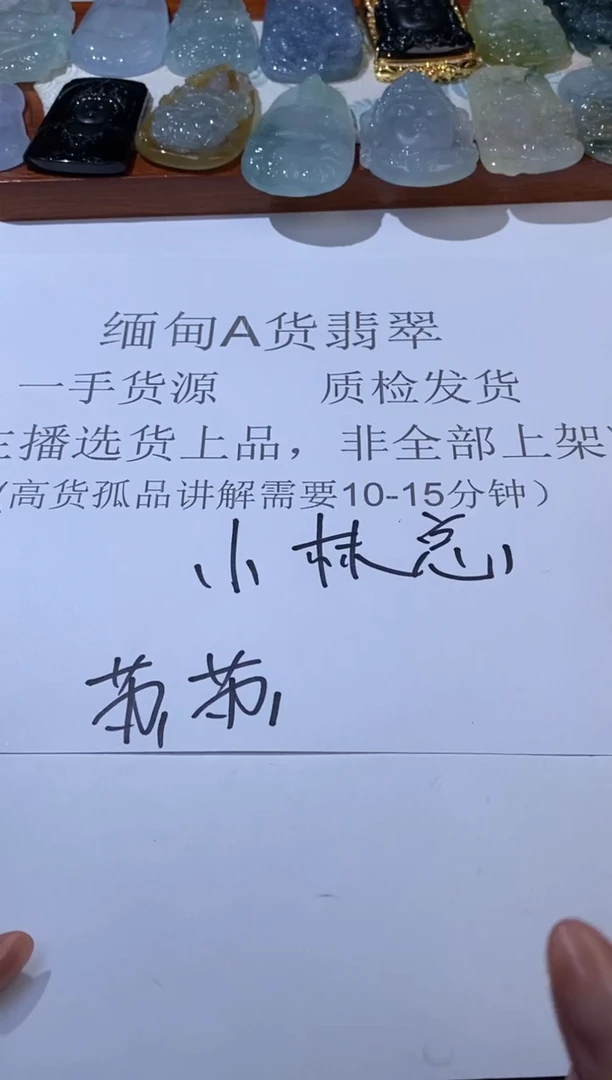 缅甸A货翡翠
一手货源 质检发货
主播选货上品，非全部上架
（高货孤品讲解需要10-15分钟）
小林总